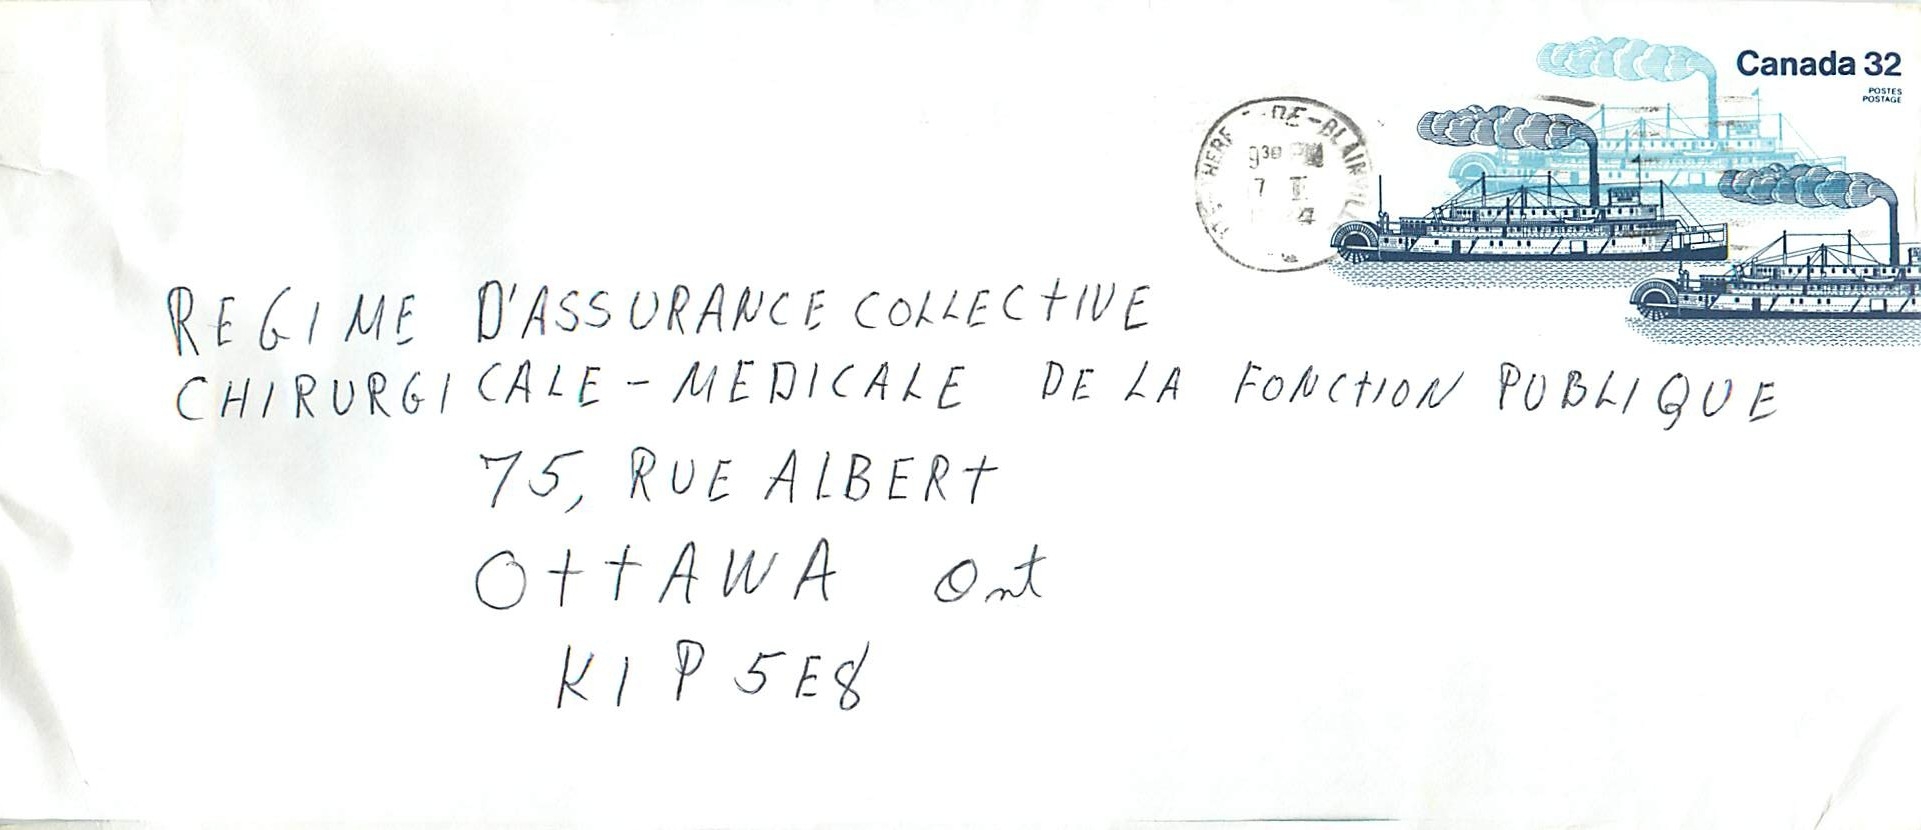 Canada 32
POSTES
POSTAGE
DE-BLAINVILL
9 30 PM
7 II
REGIME D'ASSURANCE COLLECTIVE
CHIRURGICALE-MEDICALE DE LA FONCTION PUBLIQUE
75, RUE ALBERT
OTTAWA Ont
K1P 5E8